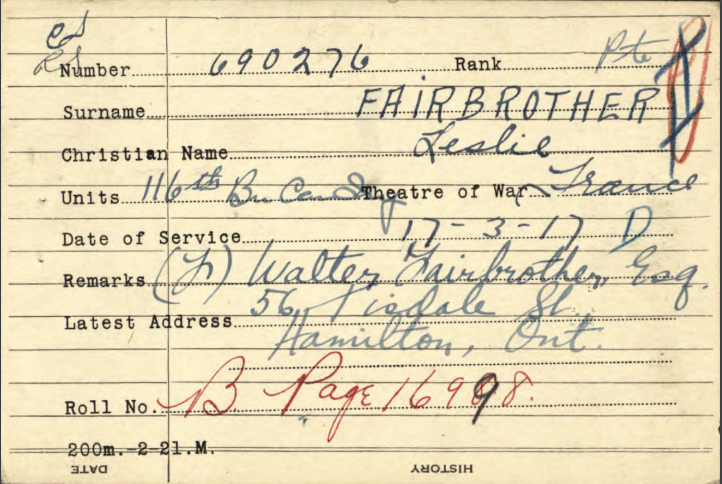 CS
RS
Number 690276 Rank Pte
Surname FAIRBROTHER
Christian Name Leslie
Units 116th Bn Can Inf Theatre of War France
Date of Service 17-3-17 D
Remarks (F) Walter Fairbrother, Esq.
Latest Address 56 Tisdale St.
Hamilton, Ont.
Roll No. B Page 16998.
200m.-2-21.M.
DATE HISTORY